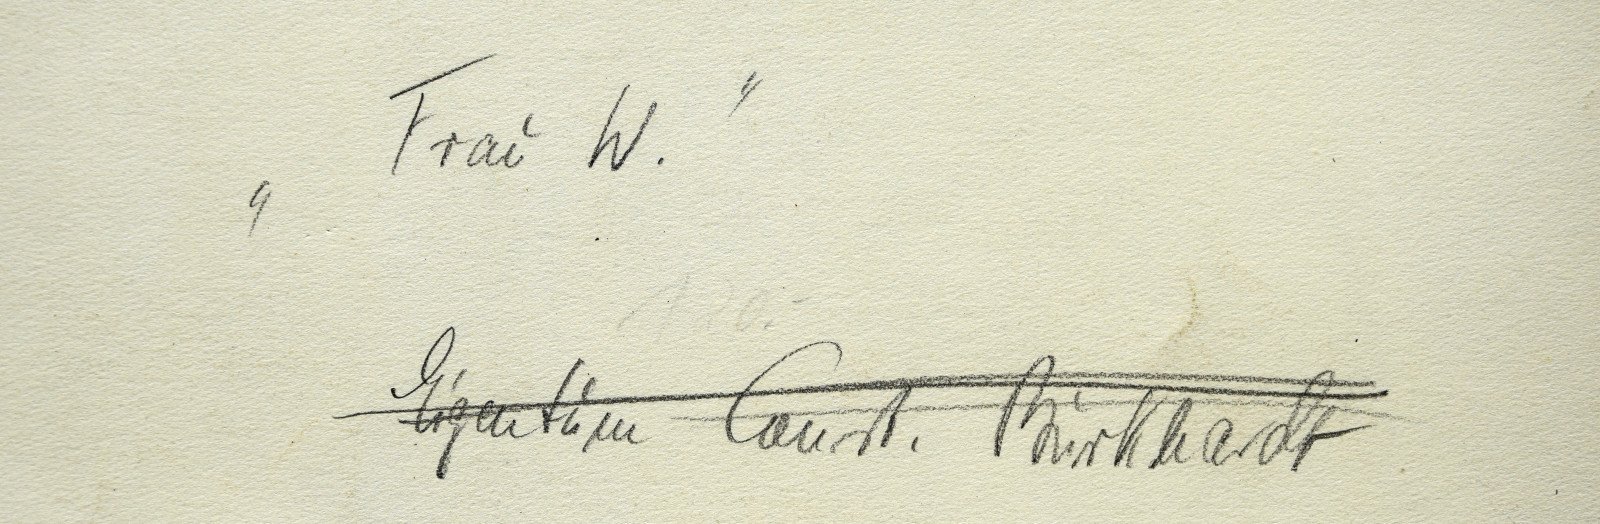 „Frau W.“
120.-
Eigentum Const. Burkhardt